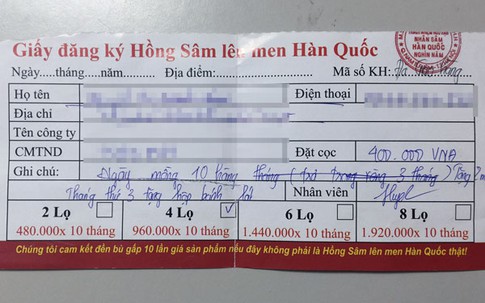 Giấy đăng ký Hồng Sâm lên men Hàn Quốc
NHÂN SÂM
HÀN QUỐC
NGHÌN NĂM
Ngày....tháng....năm...... Địa điểm: Mã số KH:
Họ tên Điện thoại
Địa chỉ
Tên công ty
CMTND Đặt cọc 400.000 VNA
Ghi chú: Ngày mồng 10 hàng tháng (trừ 3 tháng)
Tháng thứ 3 tặng hộp bánh Nhân viên
2 Lọ 4 Lọ 6 Lọ 8 Lọ
480.000x 10 tháng 960.000x 10 tháng 1.440.000x 10 tháng 1.920.000x 10 tháng
Chúng tôi cam kết đền bù gấp 10 lần giá sản phẩm nếu đây không phải là Hồng Sâm lên men Hàn Quốc thật!